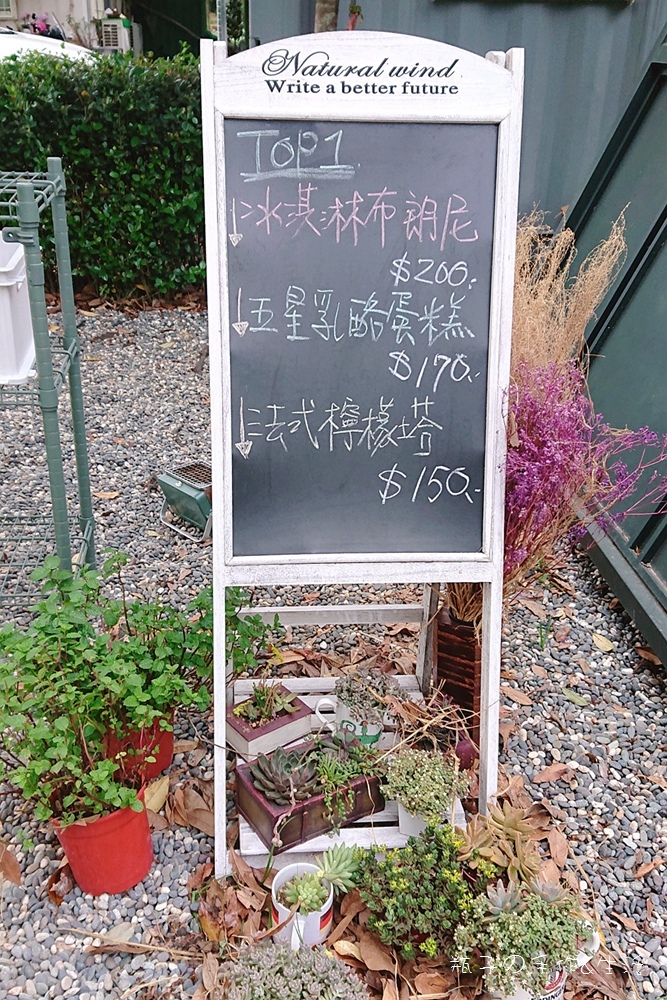 Natural wind
Write a better future
TOP1
冰淇淋布朗尼
$200.-
五星乳酪蛋糕
$170.-
法式檸檬塔
$150.-
瓶子の手札生活